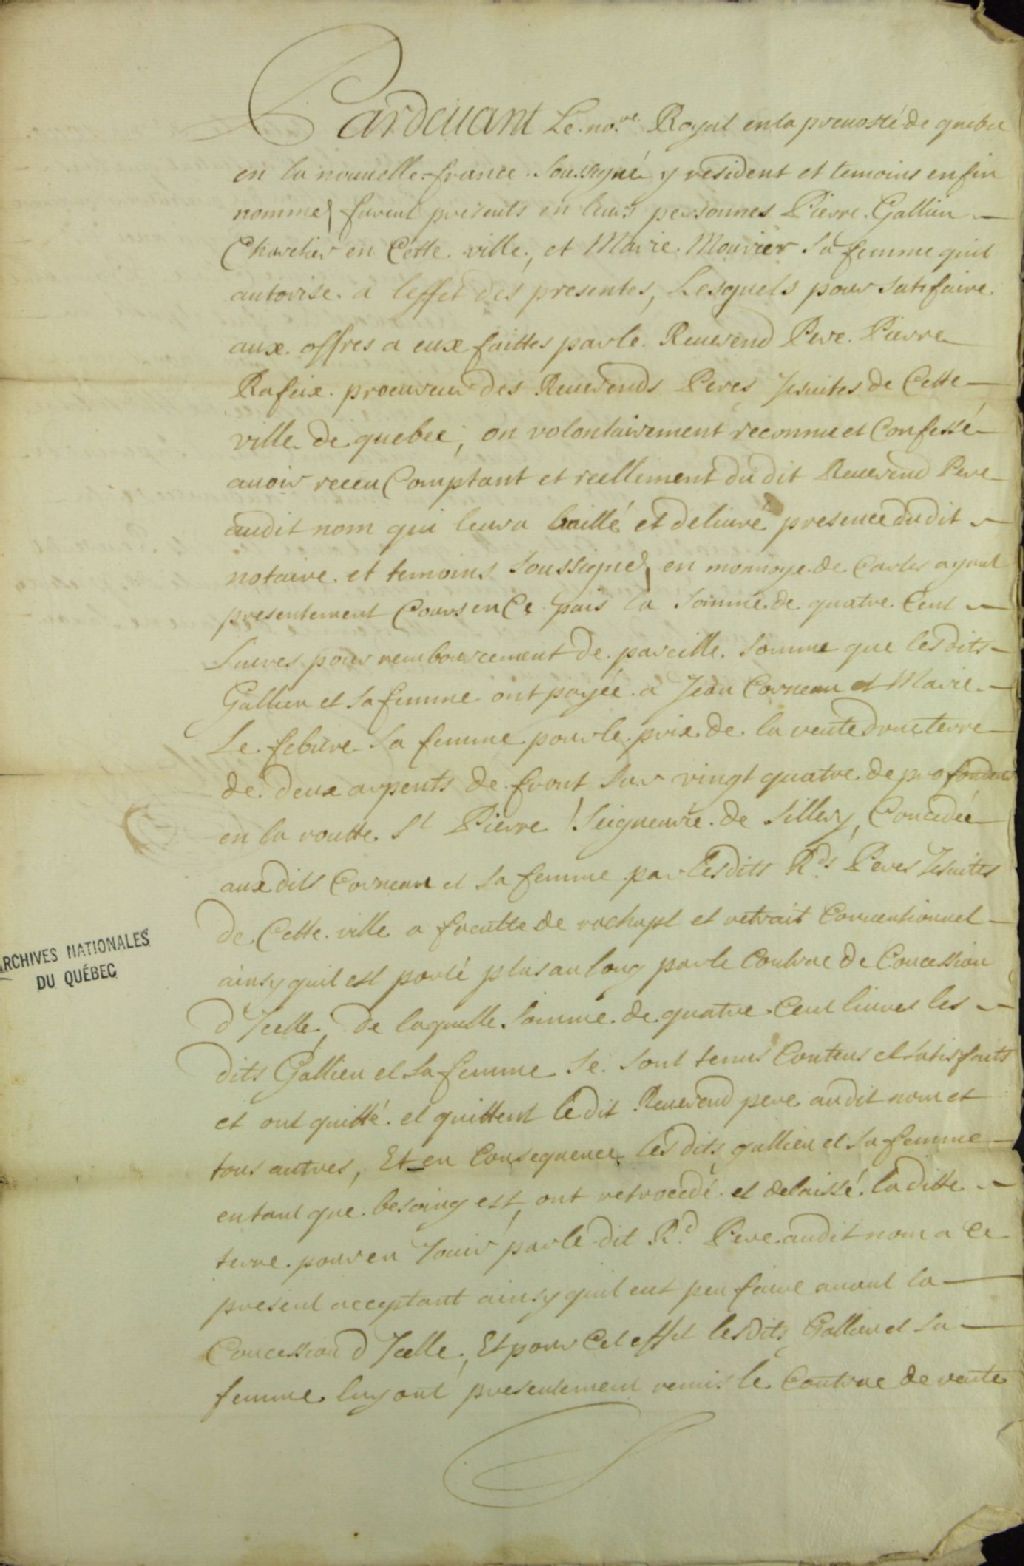 Pardeuant Le no.re Royal en la preuosté de quebec
en la nouuelle france soussigné y resident et temoins en fin
nommez furent presents en leurs personnes Pierre Gallien
Charetier en Cette ville, et Marie Mourier sa femme quil
autorise a leffet des presentes, Lesquels pour satisfaire
aux offres a eux faittes par le Reuerend Pere Pierre
Rafeix procureur des Reuerends Peres Jesuites de Cette
ville de quebec, on volontairement reconnu et Confessé
auoir receu Comptant et reellement du dit Reuerend Pere
audit nom qui leur a baillé et deliuré presence dudit
notaire et temoins soussignez en monnoye de Cartes ayant
presentement Cours en Ce païs la somme de quatre Cent
Liures pour remboursement de pareille somme que lesdits
Gallien et sa femme ont payée a Jean Corneau et Marie
Le febure sa femme pour le prix de la vente d'une terre
de deux arpents de front sur vingt quatre de profondeur
en la routte St Pierre Seigneurie de Sillery, Concedée
aux dits Corneau et sa femme par lesdits Rds Peres Jesuites
de Cette ville a faculté de rachapt et retrait Conuentionnel
ainsy quil est porté plus au long par le Contrac de Concession
d'Jcelle, de laquelle somme de quatre Cent liures les
dits Gallien et sa femme se sont tenus Contens et satisfaits
et ont quitté et quittent le dit Reuerend pere audit nom et
tous autres, Et en Consequence les dits gallien et sa femme
en tant que besoing est, ont retrocedé et delaissé la ditte
terre pour en Jouir par le dit Rd Pere audit nom a ce
present acceptant ainsy quil eut peu faire auant la
Concession d'Jcelle, Et pour Cet effet lesdits Gallien et sa
femme luy ont presentement remis le Contrac de vente
ARCHIVES NATIONALES
DU QUÉBEC